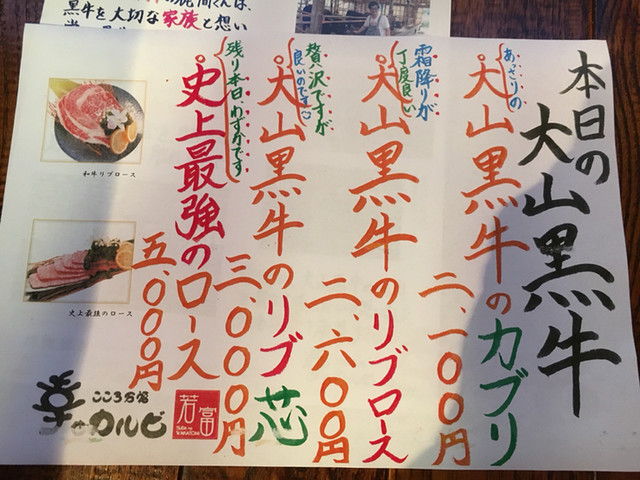 黒牛を大切な家族と想い
本日の
大山黒牛
あっさりの
大山黒牛のカブリ
二、一〇〇円
霜降りが
丁度良い
大山黒牛のリブロース
二、六〇〇円
贅沢ですが
良いのです
大山黒牛のリブ芯
三、〇〇〇円
残り本日、わずかです
史上最強のロース
五、〇〇〇円
和牛リブロース
史上最強のロース
カルビ
若富